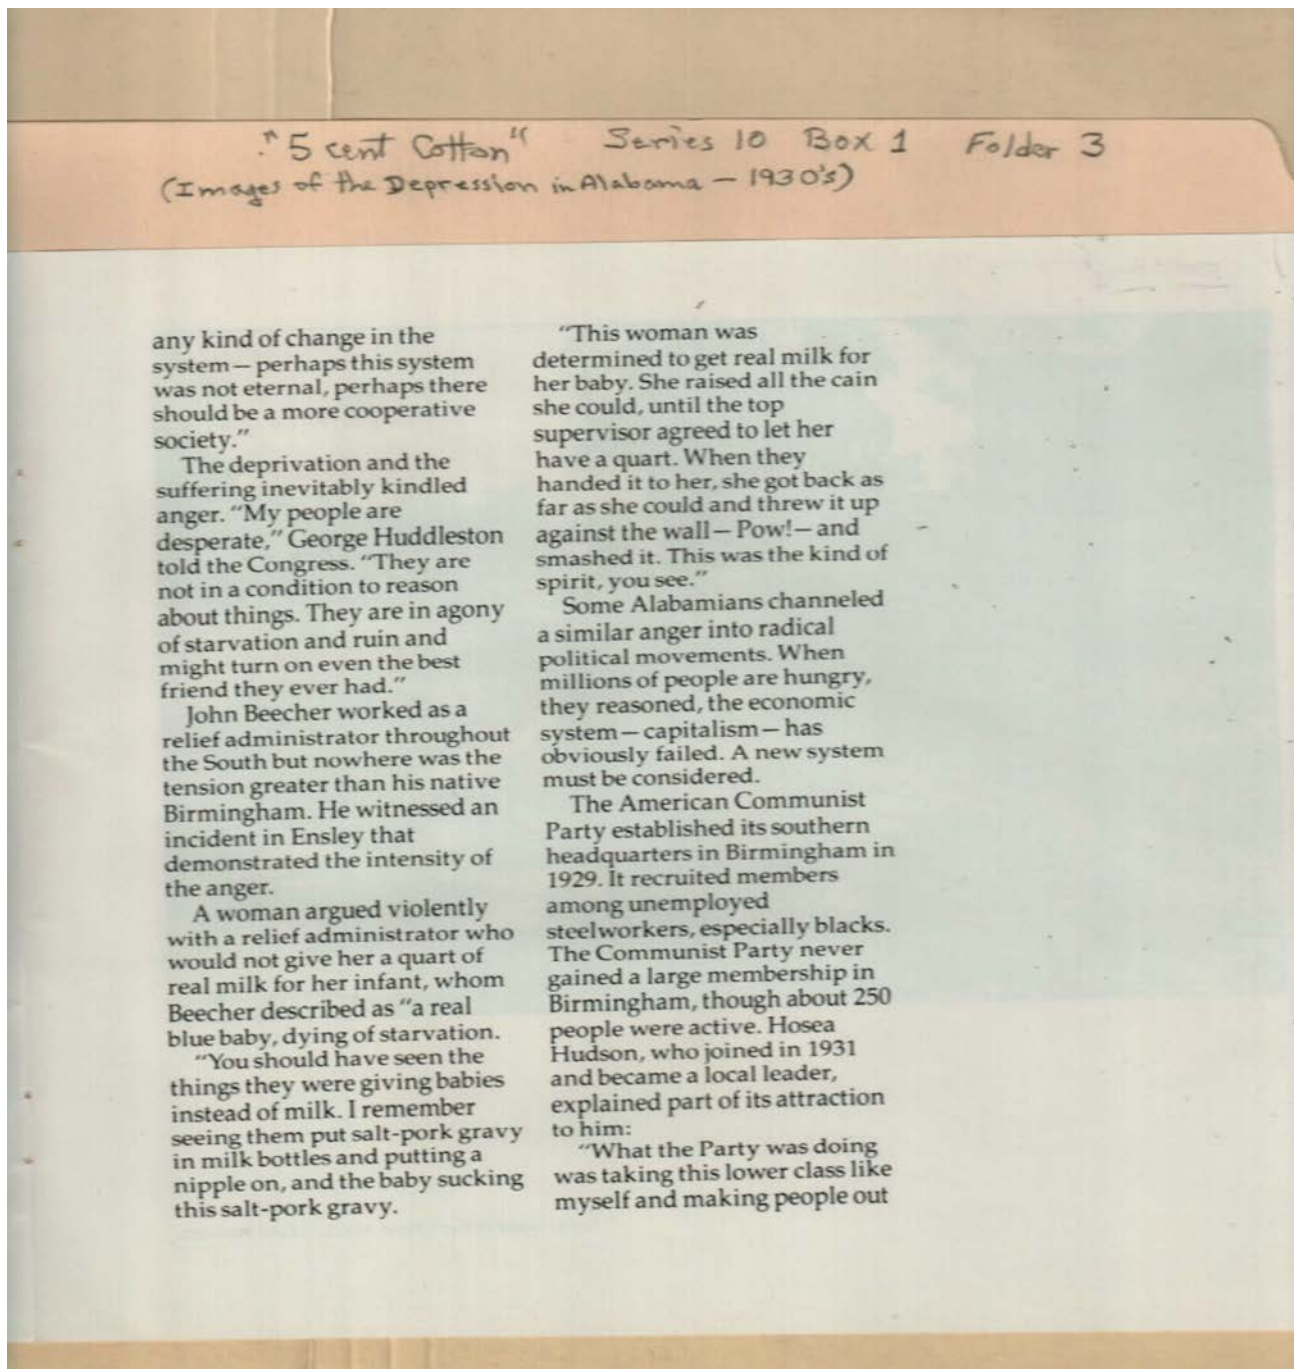 "5 cent Cotton" Series 10 Box 1 Folder 3
(Images of the Depression in Alabama – 1930's)
any kind of change in the
system — perhaps this system
was not eternal, perhaps there
should be a more cooperative
society."
The deprivation and the
suffering inevitably kindled
anger. "My people are
desperate," George Huddleston
told the Congress. "They are
not in a condition to reason
about things. They are in agony
of starvation and ruin and
might turn on even the best
friend they ever had."
John Beecher worked as a
relief administrator throughout
the South but nowhere was the
tension greater than his native
Birmingham. He witnessed an
incident in Ensley that
demonstrated the intensity of
the anger.
A woman argued violently
with a relief administrator who
would not give her a quart of
real milk for her infant, whom
Beecher described as "a real
blue baby, dying of starvation.
"You should have seen the
things they were giving babies
instead of milk. I remember
seeing them put salt-pork gravy
in milk bottles and putting a
nipple on, and the baby sucking
this salt-pork gravy.
"This woman was
determined to get real milk for
her baby. She raised all the cain
she could, until the top
supervisor agreed to let her
have a quart. When they
handed it to her, she got back as
far as she could and threw it up
against the wall — Pow! — and
smashed it. This was the kind of
spirit, you see."
Some Alabamians channeled
a similar anger into radical
political movements. When
millions of people are hungry,
they reasoned, the economic
system — capitalism — has
obviously failed. A new system
must be considered.
The American Communist
Party established its southern
headquarters in Birmingham in
1929. It recruited members
among unemployed
steelworkers, especially blacks.
The Communist Party never
gained a large membership in
Birmingham, though about 250
people were active. Hosea
Hudson, who joined in 1931
and became a local leader,
explained part of its attraction
to him:
"What the Party was doing
was taking this lower class like
myself and making people out